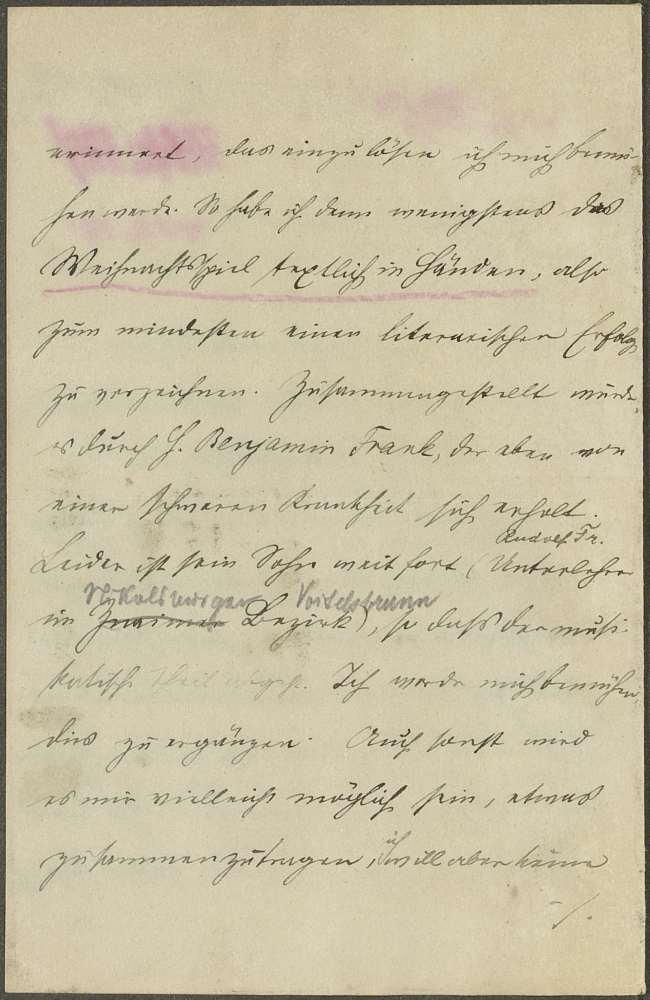 erinnert, das einzulösen ich mich bemü-
hen werde. So habe ich denn wenigstens das
Weihnachtsspiel textlich in Händen, also
zum mindesten einen literarischen Erfolg
zu verzeichnen. Zusammengestellt wurde
es durch H. Benjamin Frank, der eben von
einer schweren Krankheit sich erholt.
Rudolf Fr.
Leider ist sein Sohn weit fort (Unterlehrer
Nikolsburger Voitelsbrunn
im Znaimer Bezirk), so daß der musi-
kalische Theil. Ich werde mich bemühen,
dies zu ergänzen. Auch sonst wird
es mir vielleicht möglich sein, etwas
zusammenzutragen, ich will aber keine
./.